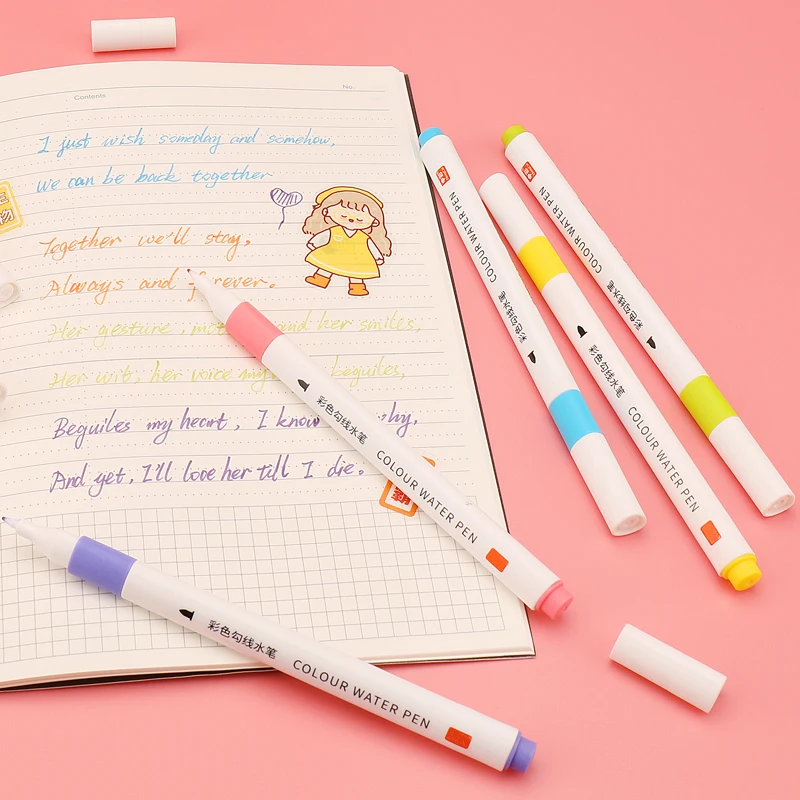 Contents
No.
I just wish someday and somehow,
we can be back together
Together we'll stay,
Always and forever.
Her gesture, and her smiles,
Her wit, her voice my beguiles,
Beguiles my heart, I know hy,
And yet, I'll love her till I die。
彩色勾线水笔 COLOUR WATER PEN
彩色勾线水笔 COLOUR WATER PEN
COLOUR WATER PEN 彩色勾线水笔
彩色勾线水笔 COLOUR WATER PEN
COLOUR WATER PEN 彩色勾线水笔